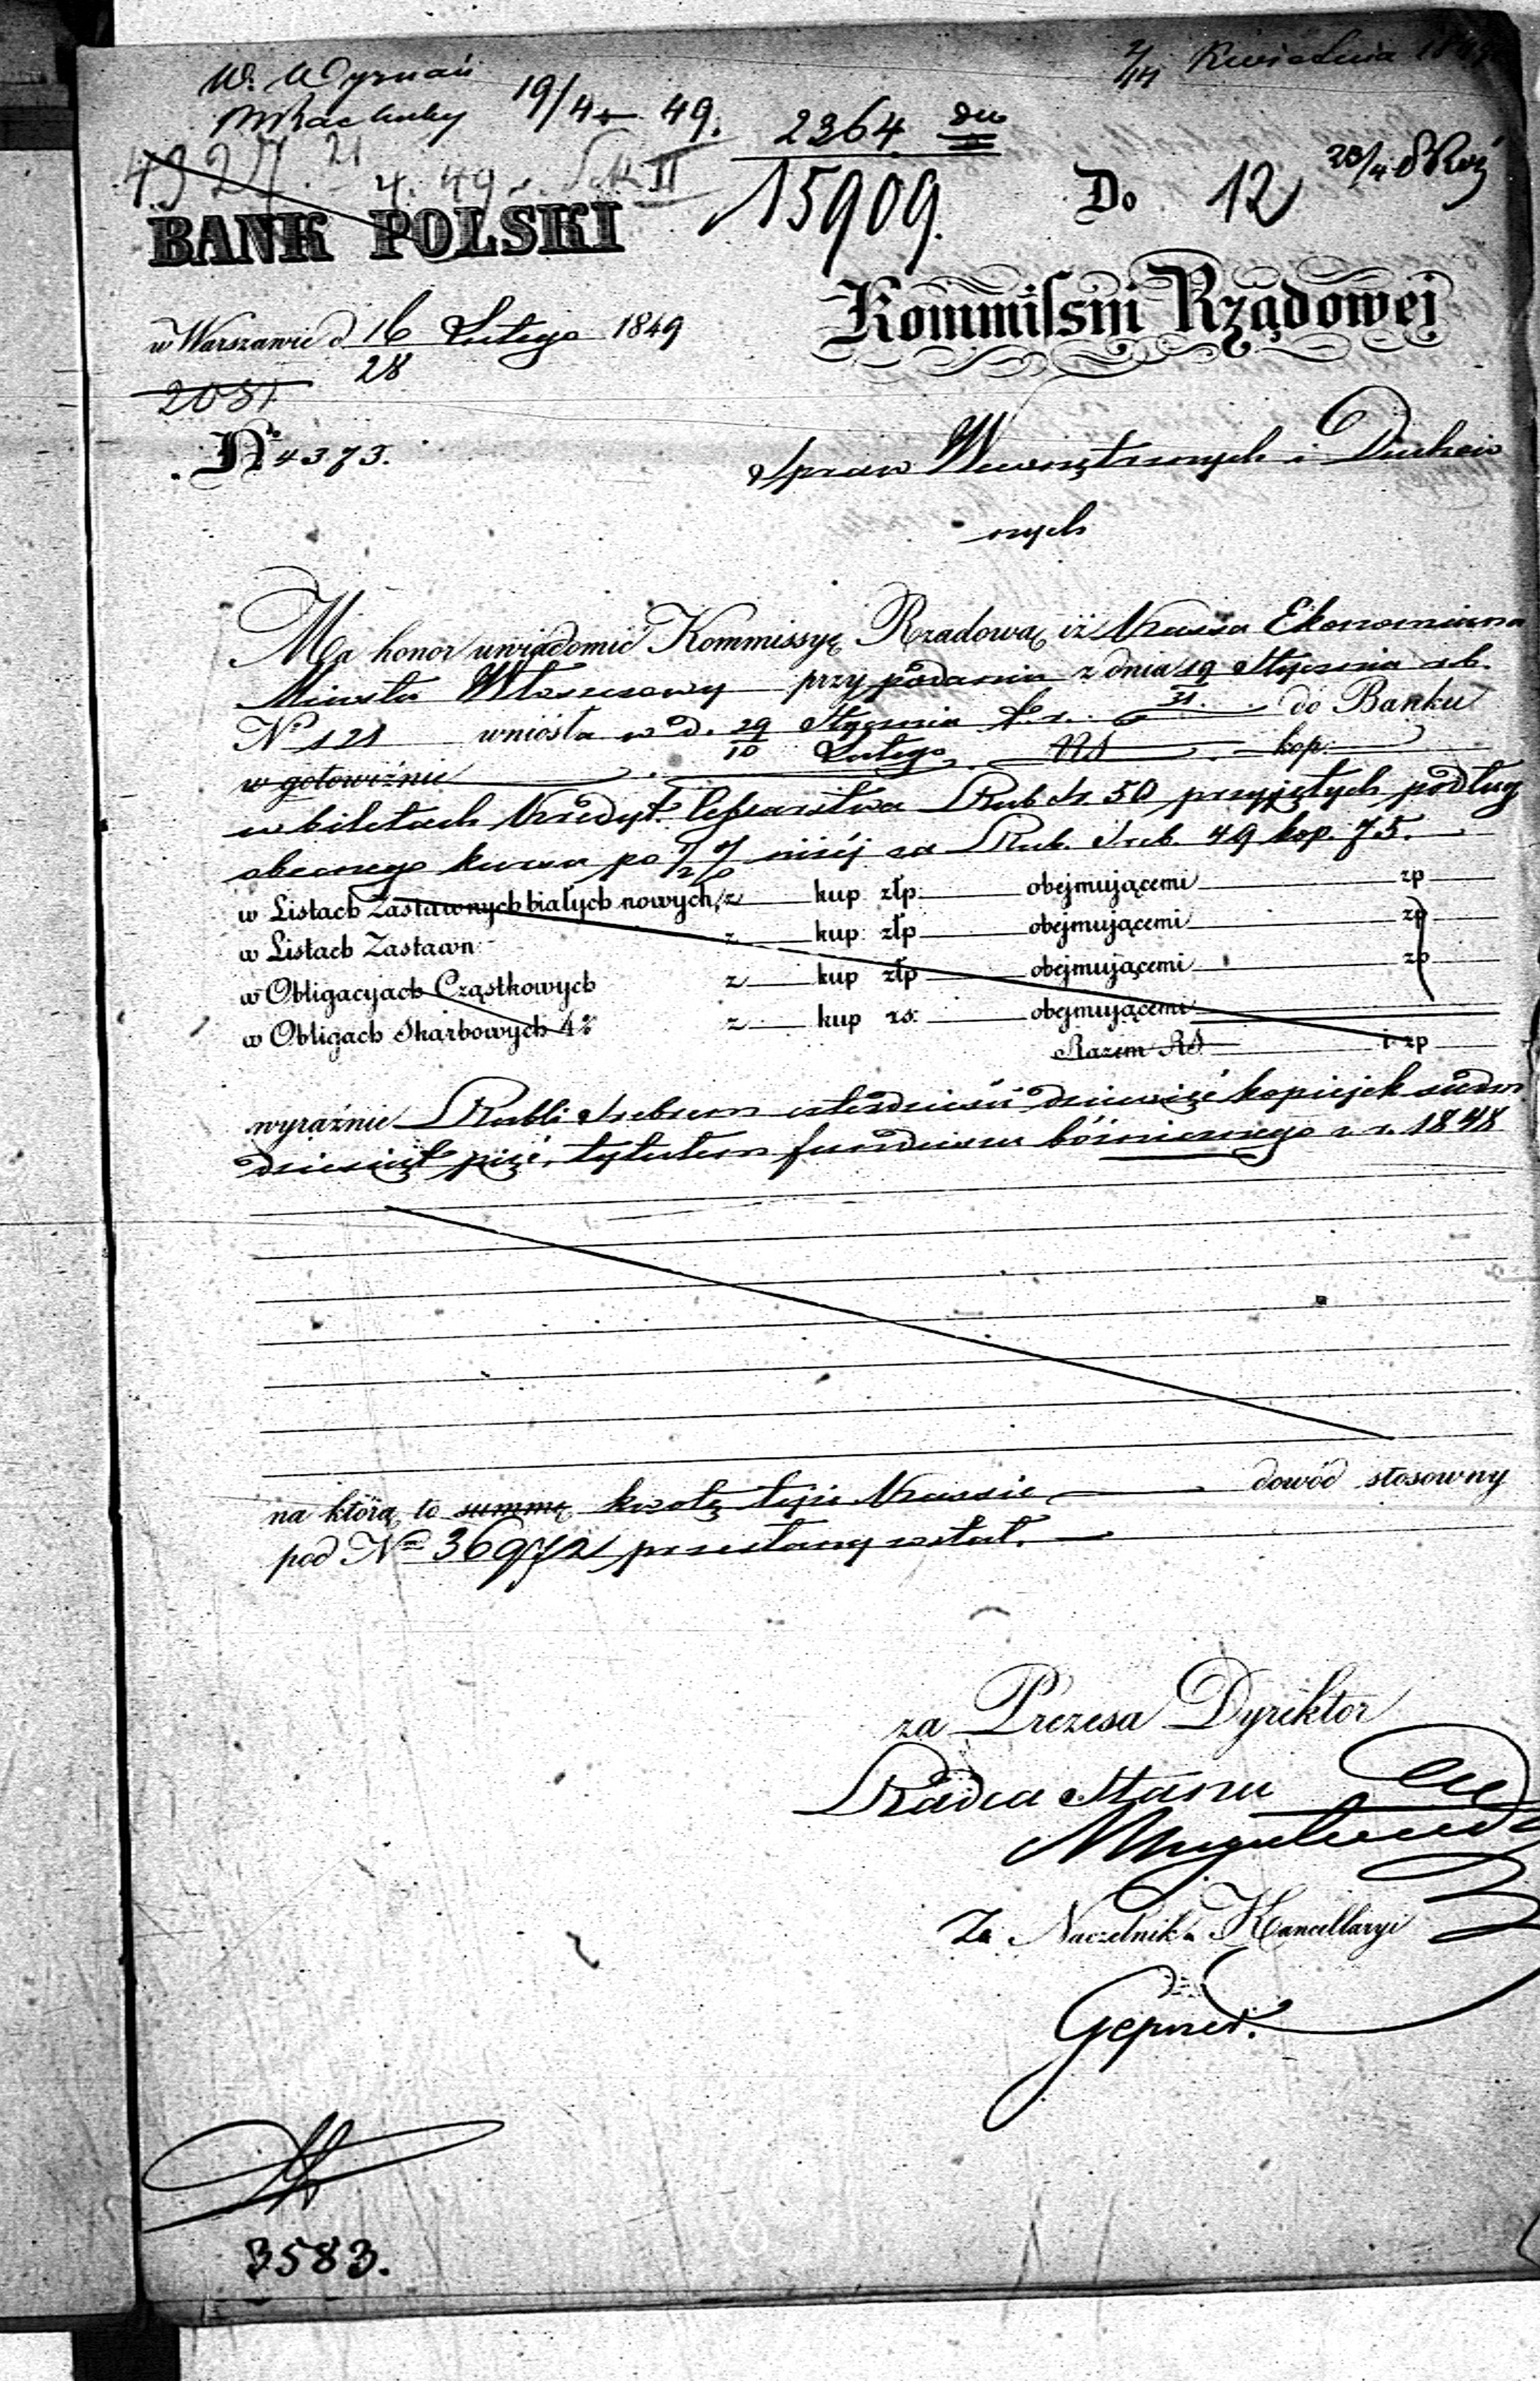 2/14 Kwietnia 1849
W. Wyznań
19/4 49.
2364
4927. 21/4. 49. Sek II
15909.
Do 12
BANK POLSKI
Kommissyi Rządowej
w Warszawie d 16/28 Lutego 1849
2031
Nr 4373.
Spraw Wewnętrznych i Duchow
nych
Ma honor uwiadomić Kommissyę Rządową, iż Kassa Ekonomiczna
Miasta Włoszczowy przy podaniu z dnia 19/31 Stycznia r.b.
No 121 wniosła w d. 29 Stycznia / 10 Lutego b.r. do Banku
w gotowiźnie RS kop:
w biletach Kredyt. Cesarstwa Rub Sr. 50 przyjętych podług
obecnego kursu po 1/2 % niżej za Rub. Sreb. 49 kop. 75.
w Listach Zastawnych białych nowych, z kup złp. obejmującemi zp
w Listach Zastawn: z kup: złp obejmującemi zp
w Obligacyach Cząstkowych z kup złp obejmującemi zp
w Obligach Skarbowych 4% z kup rs: obejmującemi
Razem RS i zp
wyraźnie Rubli Srebrem czterdzieści dziewięć kopiejek siedm
dziesiąt pięć, tytułem funduszu bóżniczego z r. 1848
na którą to summę kwotę tejże Kassie dowód stosowny
pod No 36972 przesłany został.
za Prezesa Dyrektor
Radca Stanu
Za Naczelnika Kancellaryi
Gepner.
3583.